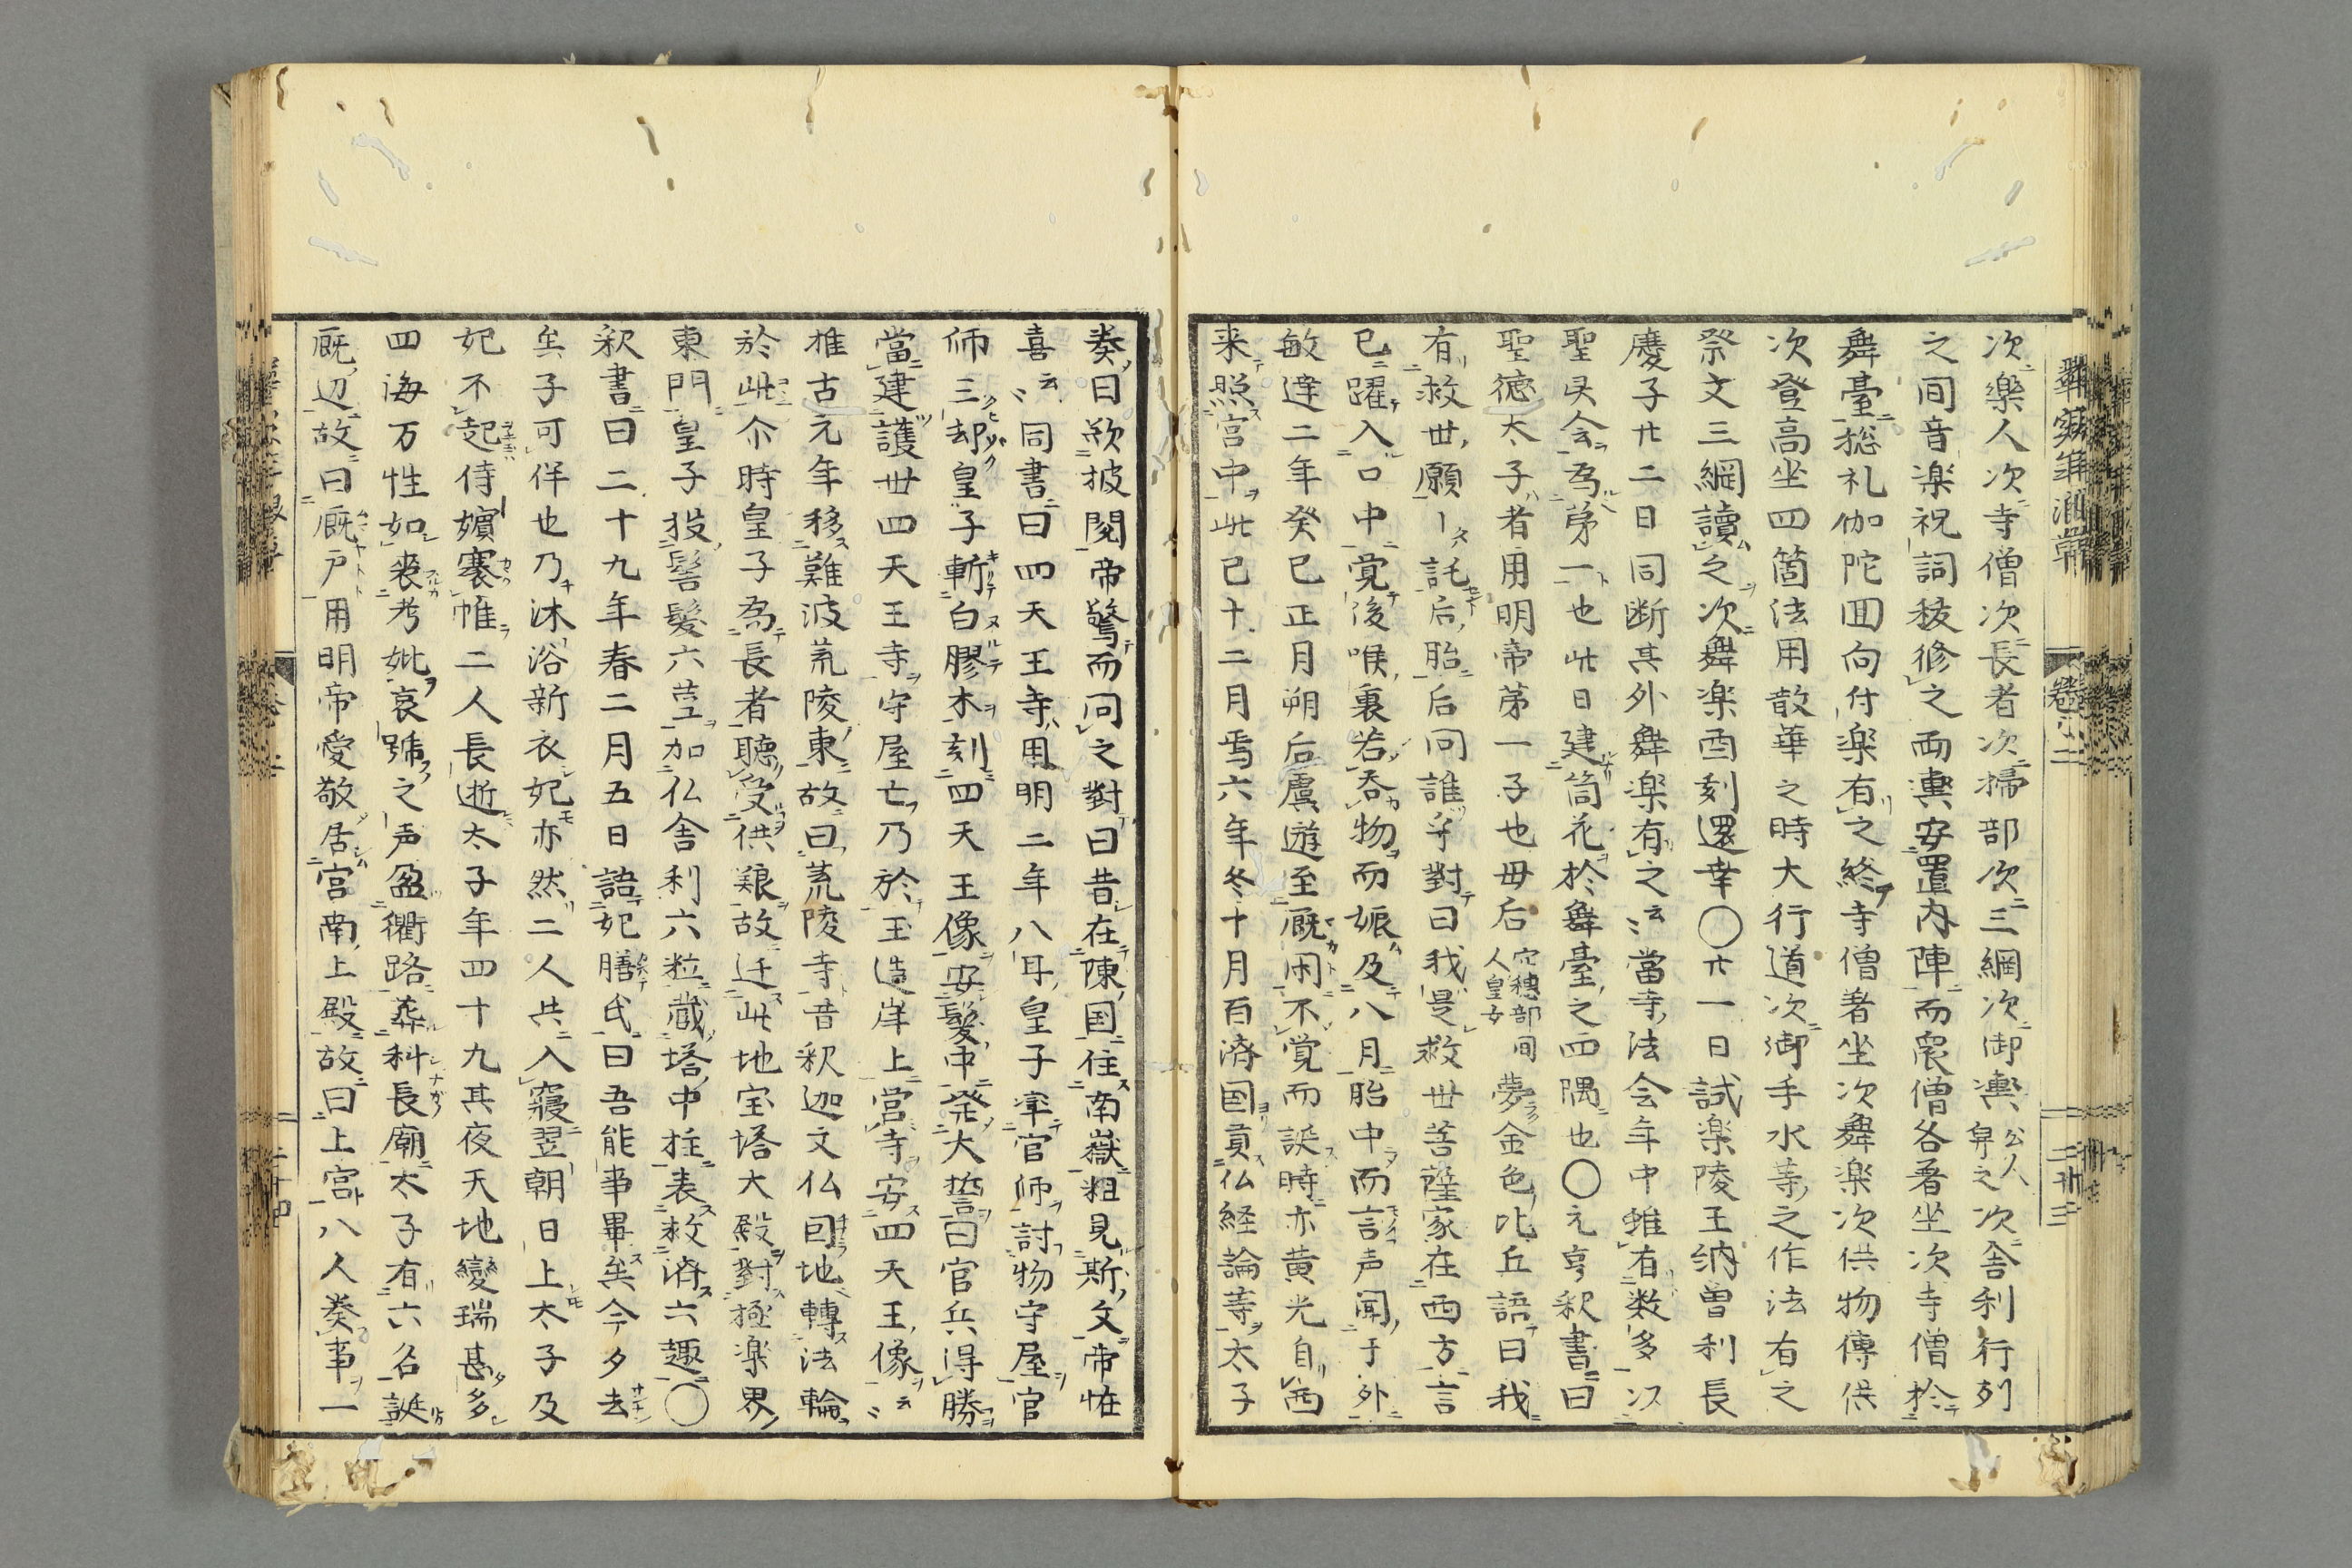 次樂人次寺僧次長者次掃部次三綱次御輿公人舁之次舎利行列
之间音楽祝詞秡修之両輿安置内陣而衆僧各着坐次寺僧於
舞臺総礼伽陀囬向付楽有之終寺僧着坐次舞楽次供物傳供
次登高坐四箇法用散華之時大行道次御手水等之作法有之
祭文三綱讀之次舞楽酉刻還幸〇廿一日試楽陵王納曽利長
慶子廿二日同断其外舞楽有之云〻當寺法会年中雖有数多以
聖㚑会為第一也此日建筒花於舞臺之四隅也〇元亨釈書曰
聖徳太子者用明帝第一子也毋后穴穗部间人皇女夢金色比丘語曰我
有救世願〡託后胎后问誰乎對曰我是救世菩薩家在西方言
已躍入口中覚後喉裏若呑物而娠及八月胎中而言声聞于外
敏達二年癸巳正月朔后虞遊至厩闲不覚而誕時亦黄光自西
来照宮中此已十二月焉六年冬十月百済国貢仏経論等太子
奏曰欲披閲帝驚而问之對曰昔在陳国住南嶽粗見斯文帝恠
喜云〻同書曰四天王寺用明二年八月皇子率官师討物守屋官
师三却皇子斬白膠木刻四天王像安髮中発大誓曰官兵得勝
當建護世四天王寺守屋亡乃於玉造岸上営寺安四天王像云〻
推古元年移難波荒陵東故曰荒陵寺昔釈迦文仏囙地轉法輪
於此尒時皇子為長者聴受供養故迁此地宝塔大殿對極楽界
東門皇子投髻髮六茎加仏舎利六粒蔵塔中柱表救済六趣〇
釈書曰二十九年春二月五日語妃膳氏曰吾能事畢矣今夕去
矣子可伴也乃沐浴新衣妃亦然二人共入寢翌朝日上太子及
妃不起侍嬪褰帷二人長逝太子年四十九其夜天地變瑞甚多
四海万性如喪考妣哀號之声盈衢路葬科長廟太子有六名誕
厩辺故曰厩戸用明帝愛敬居宮南上殿故曰上宮八人奏事一